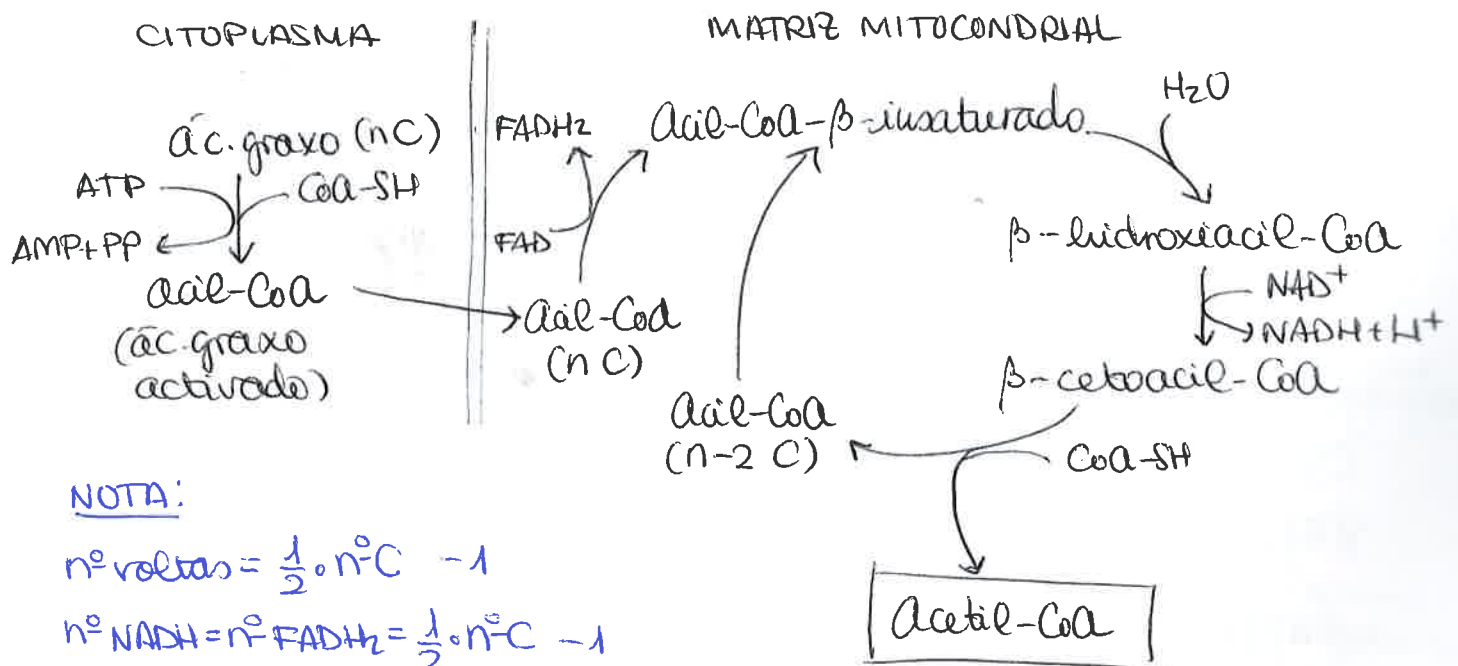 CITOPLASMA
MATRIZ MITOCONDRIAL
ác.graxo (nC)
ATP
CoA-SH
AMP+PP
acil-CoA
(ác.graxo
activado)
FADH2
FAD
Acil-CoA
(n C)
Acil-CoA-β-insaturado
H2O
β-hidroxiacil-CoA
NAD+
NADH+H+
β-cetoacil-CoA
CoA-SH
Acil-CoA
(n-2 C)
Acetil-CoA
NOTA:
nº voltas = 1/2 · nºC -1
nº NADH = nº FADH2 = 1/2 · nºC -1